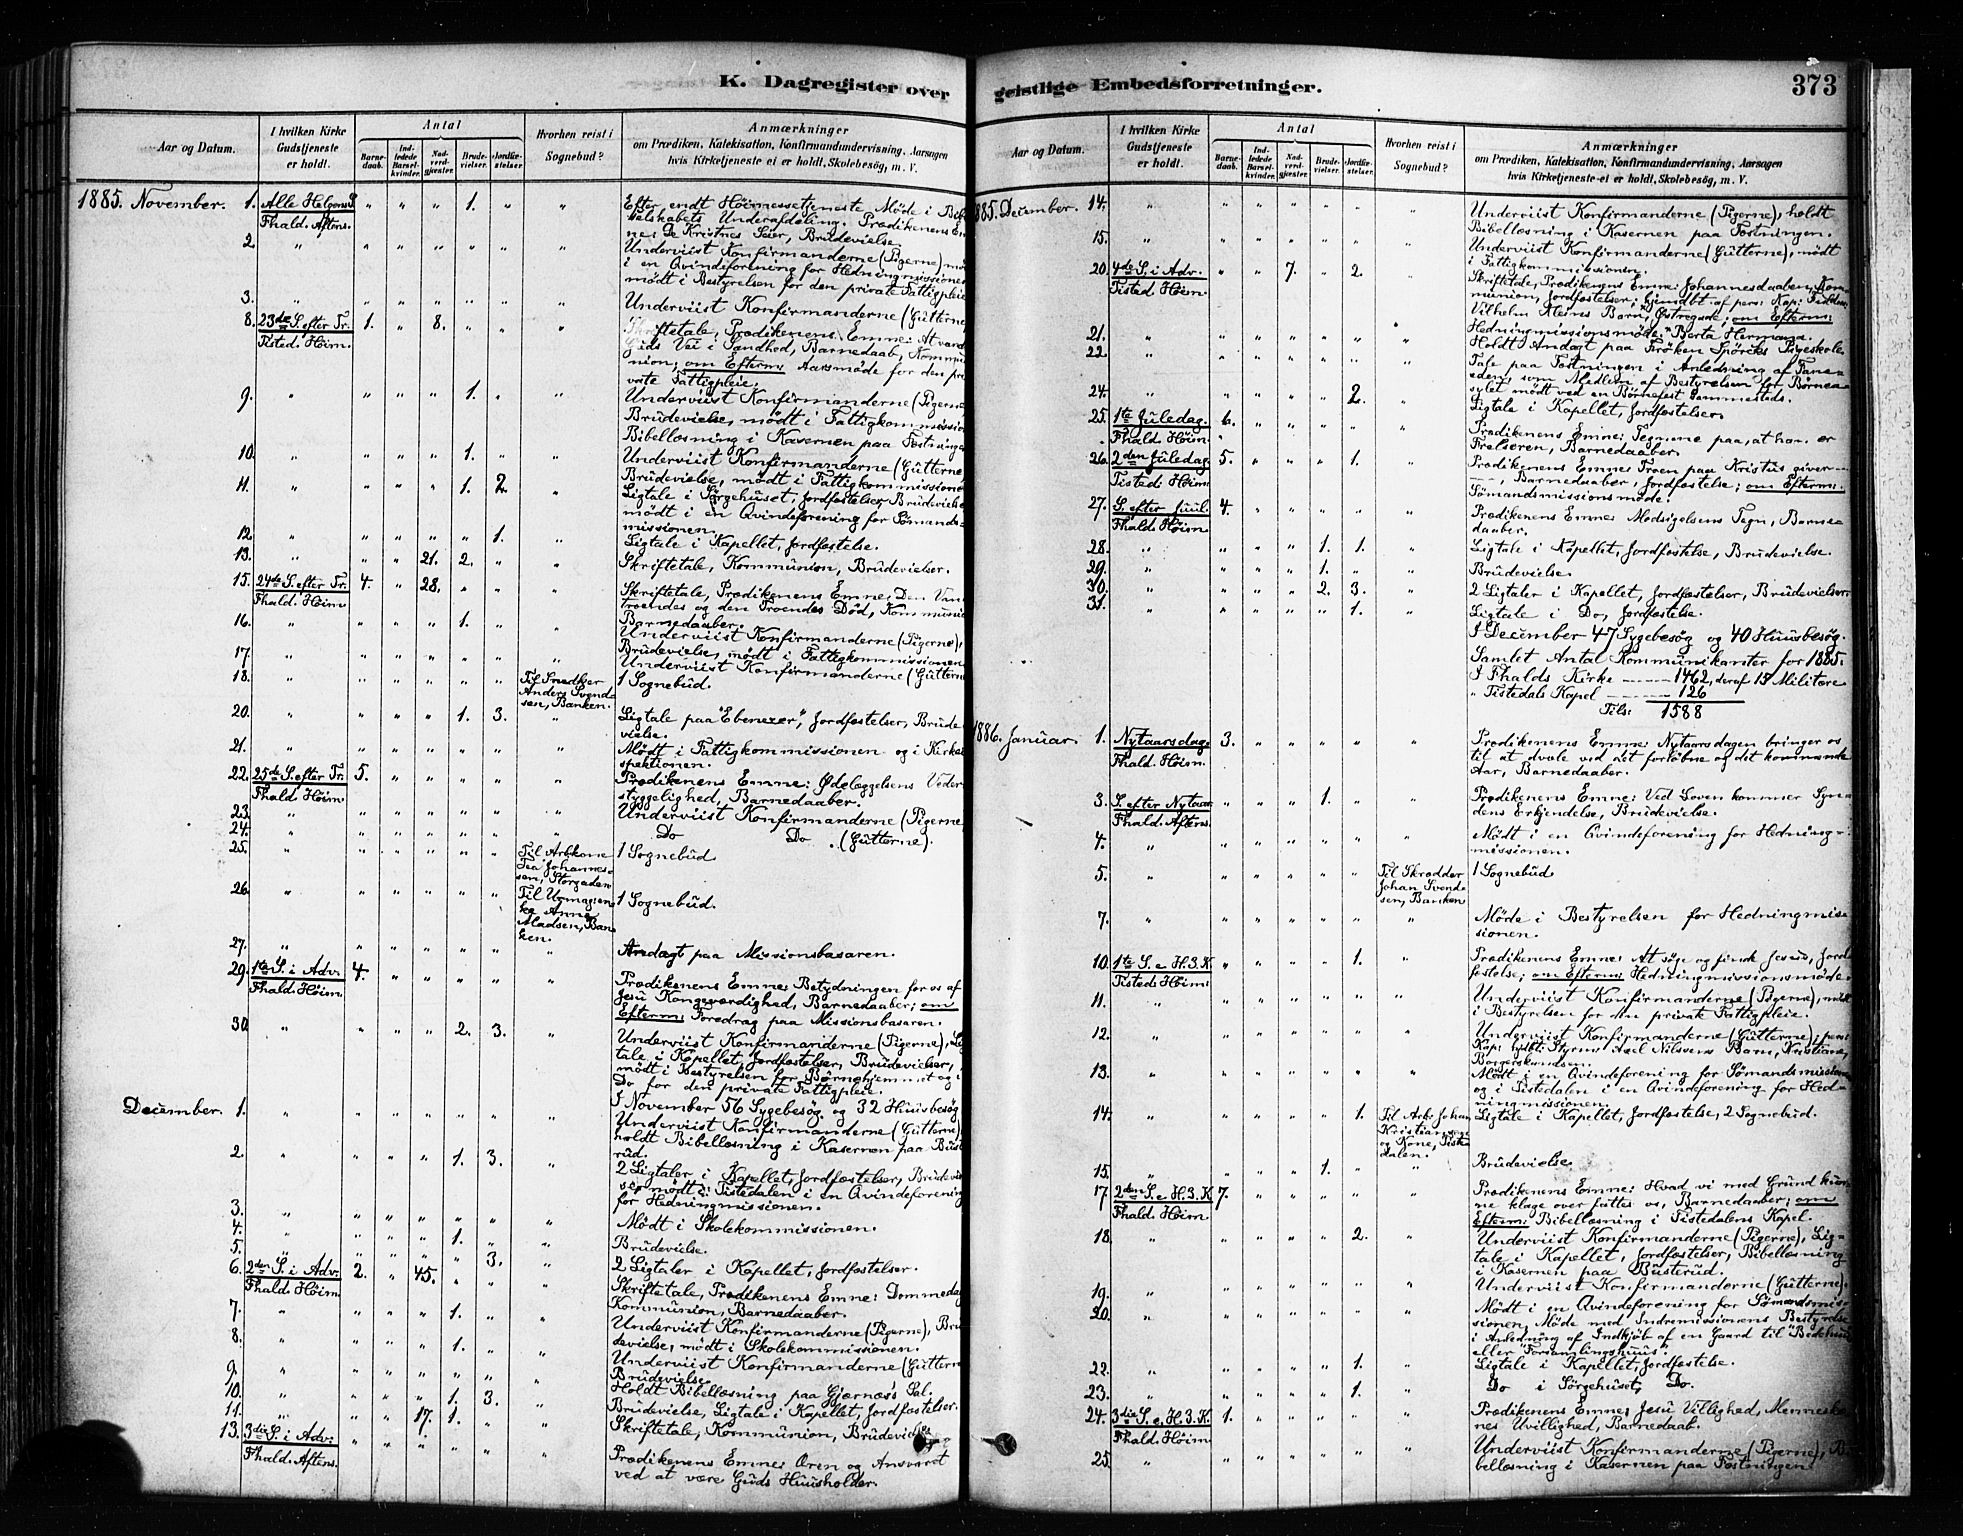 K. Dagregister over
Aar og Datum.
I hvilken Kirke Gudstjeneste er holdt.
Antal
Barnedaab.
Indledede Barselkvinder.
Nadverdgjester.
Brudevielser.
Jordfæstelser.
Hvorhen reist i Sognebud?
Anmærkninger
om Prædiken, Katekisation, Konfirmandundervisning, Aarsagen
hvis Kirketjeneste ei er holdt, Skolebesøg, m. V.
1885. November. 1. Alle Helgens D. " " " 1. " " Efter endt Høimessetjeneste Møde i Bi-
Fhald. Aftens. belskabets Underafdeling. Prædikenens Em-
ne: De Kristnes Seier, Brudevielse.
2. " " " " " " " Underviist Konfirmanderne (Pigerne), mø
i en Qvindeforening for Hedningmissionen
mødt i Bestyrelsen for den private Fattigpleie
3. " " " " " " " Underviist Konfirmanderne (Gutterne
8. 23de S. efter Tr. 1. " 8. " " " Skriftetale, Prædikenens Emne: At vand
Tisted. Høim. Guds Vei i Sandhed, Barnedaab, Kommu
nion; om Efterm: Aarsmøde for den pri
vate Fattigpleie.
9. " " " " 1. " " Underviist Konfirmanderne (Pigerne
Brudevielse, mødt i Fattigkommission
Bibellæsning i Kasernen paa Fæstningen
10. " " " " 1. " " Underviist Konfirmanderne (Gutterne,
Brudevielse, mødt i Fattigkommissionen
11. " " " " 1. 2. " Ligtale i Sørgehuset, Jordfæstelser, Brudevielse
mødt i en Qvindeforening for Sømands-
missionen.
12. " " " " " 1. " Ligtale i Kapellet, Jordfæstelse.
13. " " " 21. 2. " " Skriftetale, Kommunion, Brudevielser.
15. 24de S. efter Tr. 4. " 28. " " " Skriftetale, Prædikenens Emne: Den Van
Fhald. Høim. troendes og den Troendes Død, Kommunion
Barnedaaber.
16. " " " " 1. " " Underviist Konfirmanderne (Pigerne),
Brudevielse, mødt i Fattigkommissionen
17. " " " " " " " Underviist Konfirmanderne (Gutterne
18. " " " " " " Til Snedker Anders Svendsen, Banken. 1 Sognebud.
20. " " " " 1. 3. " Ligtale paa "Ebenezer", Jordfæstelser, Brude
vielse.
21. " " " " " " " Mødt i Fattigkommissionen og i Kirkei
spektionen.
22. 25de S. efter Tr. 5. " " " " " Prædikenens Emne: Ødelæggelsens Veder
Fhald. Høim. styggelighed, Barnedaaber.
23. " " " " " " " Underviist Konfirmanderne (Pigerne,
24. " " " " " " " Do Do (Gutterne).
25. " " " " " " Til Arbkone Tea Johannessen, Storgaden 1 Sognebud
26. " " " " " " Til Madsen, Banken. 1 Sognebud.
27. " " " " " " " Andagt paa Missionsbasaren.
29. 1ste S. i Adv. 4. " " " " " Prædikenens Emne: Betydningen for os af
Fhald. Høim. Jesu Kongeværdighed, Barnedaaber; om
Efterm: Foredrag paa Missionsbasaren.
30. " " " " 2. 3. " Underviist Konfirmanderne (Pigerne), Lig
tale i Kapellet, Jordfæstelser, Brudevielser,
mødt i Bestyrelsen for Børnehjemmet og i
Do for den private Fattigpleie.
I November 56 Sygebesøg og 32 Huusbesøg
December. 1. " " " " " " " Underviist Konfirmanderne (Gutterne)
holdt Bibellæsning i Kasernen paa Bust
rud.
2. " " " " 1. 3. " 2 Ligtaler i Kapellet, Jordfæstelser, Brudevi
se, mødt i Tistedalen i en Qvindeforening
for Hedningmissionen.
3. " " " " " " " Mødt i Skolekommissionen.
4. " " " " 1. " " Brudevielse.
5. " " " " " 3. " 2 Ligtaler i Kapellet, Jordfæstelser.
6. 2den S. i Adv. 2. " 45. " " " Skriftetale, Prædikenens Emne: Dommedag
Fhald. Høim. Kommunion, Barnedaaber.
7. " " " " 1. " " Underviist Konfirmanderne (Pigerne), Bru
devielse, mødt i Skolekommissionen.
8. " " " " 1. " " Underviist Konfirmanderne (Gutterne
Brudevielse.
9. " " " " " " " Holdt Bibellæsning paa Gjærnæs's Sal.
10. " " " " 1. 3. " Brudevielse, Ligtale i Kapellet, Jordfæstelser.
11. " " " 17. 1. " " Skriftetale, Kommunion, Brudevielse
13. 3die S. i Adv. " " " " " " Prædikenens Emne: Æren og Ansvaret
Fhald. Aftens. ved at være Guds Huusholder.
geistlige Embedsforretninger.
373
Aar og Datum.
I hvilken Kirke Gudstjeneste er holdt.
Antal
Barnedaab.
Indledede Barselkvinder.
Nadverdgjester.
Brudevielser.
Jordfæstelser.
Hvorhen reist i Sognebud?
Anmærkninger
om Prædiken, Katekisation, Konfirmandundervisning, Aarsagen
hvis Kirketjeneste ei er holdt, Skolebesøg, m. V.
1885. December. 14. " " " " " " " Underviist Konfirmanderne (Pigerne), holdt
Bibellæsning i Kasernen paa Fæstningen.
15. " " " " " " " Underviist Konfirmanderne (Gutterne), mødt
i Fattigkommissionen.
20. 4de S. i Adv. " " 7. " 2. " Skriftetale, Prædikenens Emne: Johannesdaaben, Kom-
Tisted. Høim. munion, Jordfæstelser; hjemdbt af pers: Kap:
Vilhelm Barn, Østregade; om Efterm:
Hedningmissionsmøde: "Berta Hermann.
21. " " " " " " " Holdt Andagt paa Frøken Spørcks Pigeskole.
22. " " " " " " " Tale paa Fæstningen i Anledning af Fane-
eden, som Medlem af Bestyrelsen for Børnea-
sylet mødt ved en Børnefest sammesteds.
24. " " " " " 2. " Ligtale i Kapellet, Jordfæstelser.
25. 1ste Juledag. 6. " " " " " Prædikenens Emne: Tegnene paa, at han er
Fhald. Høim. Frelseren, Barnedaaber.
26. 2den Juledag. 5. " " " 1. " Prædikenens Emne: Troen paa Kristus giver
Tisted. Høim. Barnedaaber, Jordfæstelse; om Efterm:
Sømandsmissionsmøde.
27. S. efter Juul. 4. " " " " " Prædikenens Emne: Modsigelsens Tegn, Barne-
Fhald. Høim. daaber.
28. " " " " 1. 1. " Ligtale i Kapellet, Jordfæstelse, Brudevielse.
29. " " " " 1. " " Brudevielse.
30. " " " " 2. 3. " 2 Ligtaler i Kapellet, Jordfæstelser, Brudevielser.
31. " " " " " 1. " Ligtale i Do, Jordfæstelse.
I December 47 Sygebesøg og 40 Huusbesøg.
Samlet Antal Kommunikanter for 1885.
I Fhalds Kirke ------ 1462, deraf 15 Militære
" Tistedals Kapel ------ 126
Tils: 1588
1886. Januar. 1. Nytaarsdag. 3. " " " " " Prædikenens Emne: Nytaarsdagen bringer os
Fhald. Høim. til at dvæle ved det forløbne og det kommende
Aar, Barnedaaber.
3. S. efter Nytaar " " " 1. " " Prædikenens Emne: Ved Loven kommer Syn-
Fhald. Aftens. dens Erkjendelse, Brudevielse.
4. " " " " " " " Mødt i en Qvindeforening for Hedning-
missionen.
5. " " " " " " Til Skrædder Johan Svendsen, Banken 1 Sognebud
7. " " " " " " " Møde i Bestyrelsen for Hedningmis-
sionen.
10. 1ste S. e. H. 3. K. " " " " 1. " Prædikenens Emne: At søge og finde Jesus, Jord-
Tisted. Høim. fæstelse; om Efterm: Hedningmissionsmøde.
11. " " " " " " " Underviist Konfirmanderne (Pigerne), mødt
i Bestyrelsen for den private Fattigpleie.
12. " " " " " " " Underviist Konfirmanderne (Gutterne); pers:
Kap: hjdbt: Styrm: Axel Nilsens Barn, Kristiane,
Borgerskansen.
13. " " " " " " " Mødt i en Qvindeforening for Sømandsmissionen
og i Tistedalen i en Qvindeforening for Hed-
ningmissionen.
14. " " " " " 1. Til Arb: Johan Kristiansen og Kone, Tistedalen. Ligtale i Kapellet, Jordfæstelse, 2 Sognebud.
15. " " " " 1. " " Brudevielse.
17. 2den S. e. H. 3. K. 7. " " " " " Prædikenens Emne: Hvad vi med Grund kun-
Fhald. Høim. ne klage over fattes os, Barnedaaber; om
Efterm: Bibellæsning i Tistedalens Kapel.
18. " " " " " 2. " Underviist Konfirmanderne (Pigerne), Lig-
tale i Kapellet, Jordfæstelser, Bibellæsning
i Kasernen paa Busterud.
19. " " " " " " " Underviist Konfirmanderne (Gutterne).
20. " " " " " " " Mødt i en Qvindeforening for Sømandsmis-
sionen, Møde med Indremissionens Bestyrelse
i Anledning af Indkjøb af en Gaard til "Bedehuus
eller "Forsamlingshuus".
22. " " " " " 1. " Ligtale i Kapellet, Jordfæstelse.
23. " " " " " 1. " Do i Sørgehuset, Do.
24. 3die S. e. H. 3. K. 1. " " " " " Prædikenens Emne: Jesu Villighed, Menneske-
Fhald. Høim. nes Uvillighed, Barnedaab.
25. " " " " " " " Underviist Konfirmanderne (Pigerne), Bi
bellæsning i Kasernen paa Fæstningen.